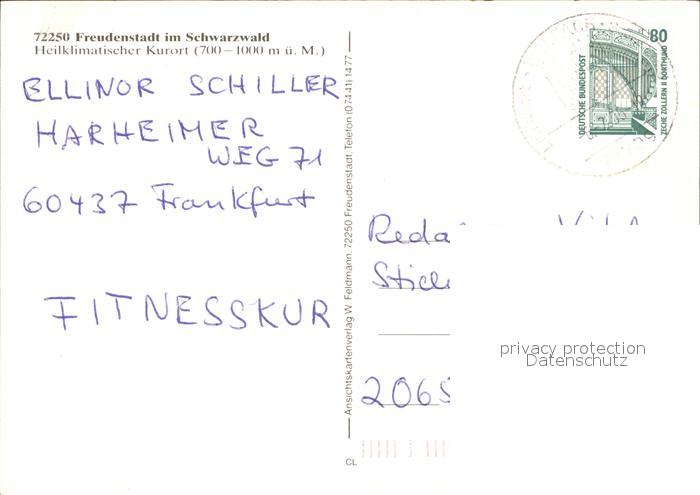 72250 Freudenstadt im Schwarzwald
Heilklimatischer Kurort (700–1000 m ü. M.)
ELLINOR SCHILLER
HARHEIMER
WEG 71
60437 Frankfurt
FITNESSKUR
Ansichtskartenverlag W. Feldmann, 72250 Freudenstadt, Telefon (07441) 1477
CL
80
DEUTSCHE BUNDESPOST
ZECHE ZOLLERN II DORTMUND
Reda
Stich
2065
privacy protection
Datenschutz